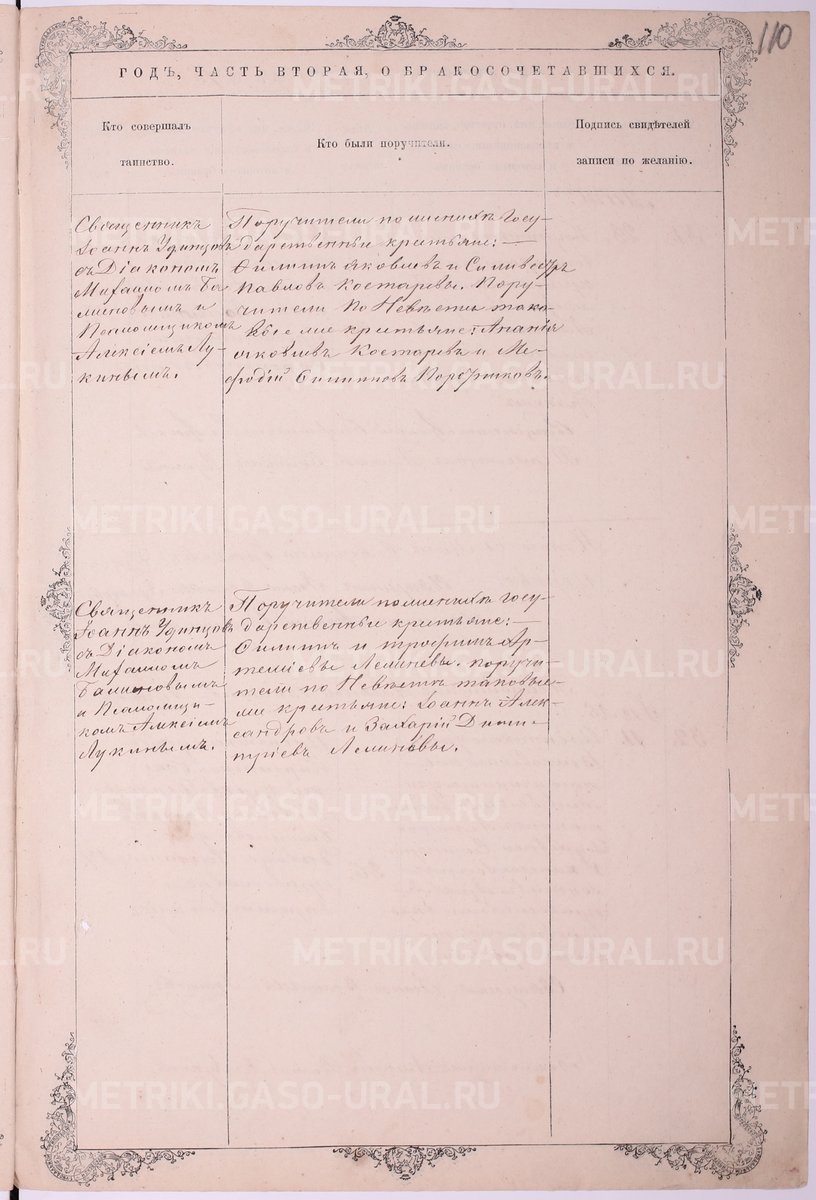 110
ГОДЪ, ЧАСТЬ ВТОРАЯ, О БРАКОСОЧЕТАВШИХСЯ.
Кто совершалъ
таинство.
Кто были поручители.
Подпись свидѣтелей
записи по желанію.
Священникъ
Іоаннъ Удинцовъ
съ Діакономъ
Михаиломъ Ба-
линовымъ и
Псаломщикомъ
Алексіемъ Лу-
кинымъ.
Поручители по женихѣ Госу-
дарственныи крестьяне:
Филиппъ Яковлевъ и Сильвестръ
Павловъ Костаревы. Пору-
чители по Невѣсты тако-
выеже крестьяне: Ананія
Яковлевъ Костаревъ и Ме-
фодій Филиповъ
Священникъ
Іоаннъ Удинцовъ
съ Діакономъ
Михаиломъ
Балиновымъ
и Псаломщи-
комъ Алексіемъ
Лукинымъ.
Поручители по женихѣ Госу-
дарственныи крестьяне:
Филиппъ и Трофимъ Ар-
теміевы поручи-
тели по Невѣстѣ таковые-
же крестьяне: Іоаннъ Алек-
сандровъ и Захарій Дими-
тріевъ
METRIKI.GASO-URAL.RU